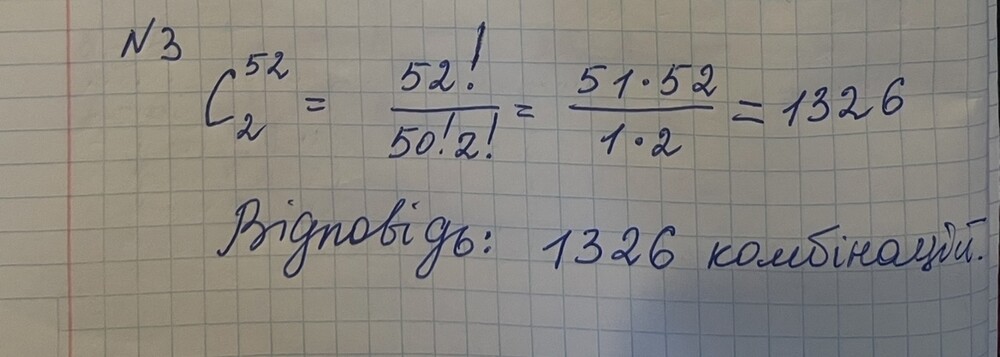 N3
C₂⁵² = 52! / 50!2! = 51·52 / 1·2 = 1326
Відповідь: 1326 комбінацій.